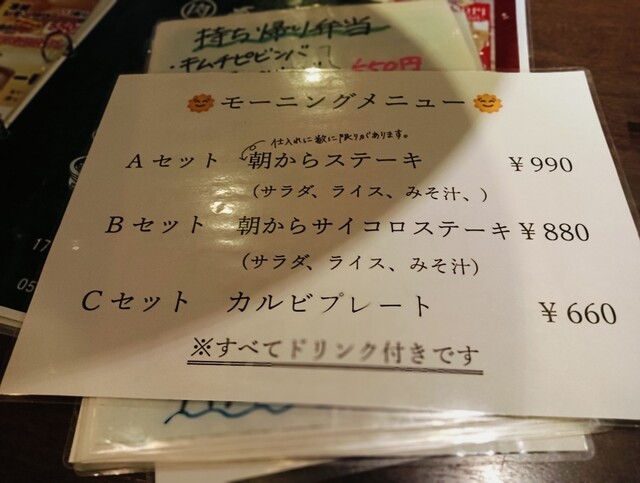 持ち帰り弁当
・キムチビビンバ 650円
モーニングメニュー
仕入れに数に限りがあります。
Aセット 朝からステーキ ¥990
(サラダ、ライス、みそ汁、)
Bセット 朝からサイコロステーキ ¥880
(サラダ、ライス、みそ汁)
Cセット カルビプレート ¥660
※すべてドリンク付きです
17
05